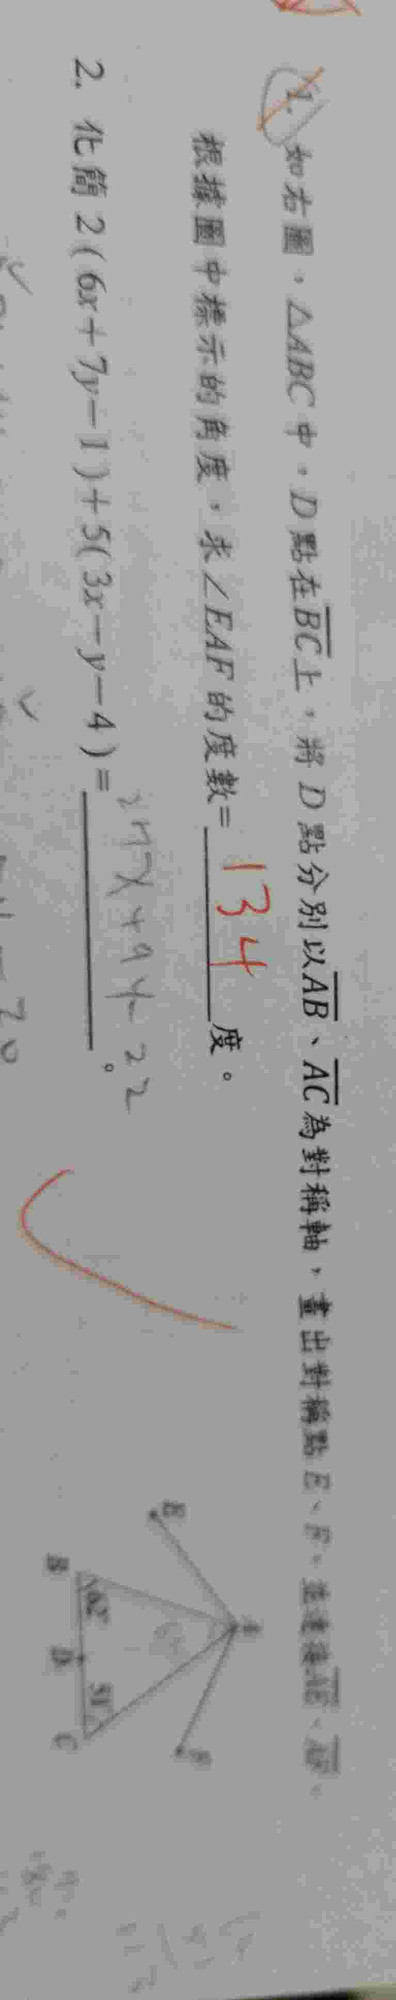 1. 如右圖，△ABC中，D點在BC上，將D點分別以AB、AC為對稱軸，畫出對稱點E、F，並連接AE、AF，
根據圖中標示的角度，求∠EAF的度數=134度。
2. 化簡2(6x+7y-1)+5(3x-y-4)=27x+9y-22。
A
E
F
B 62° D 51° C